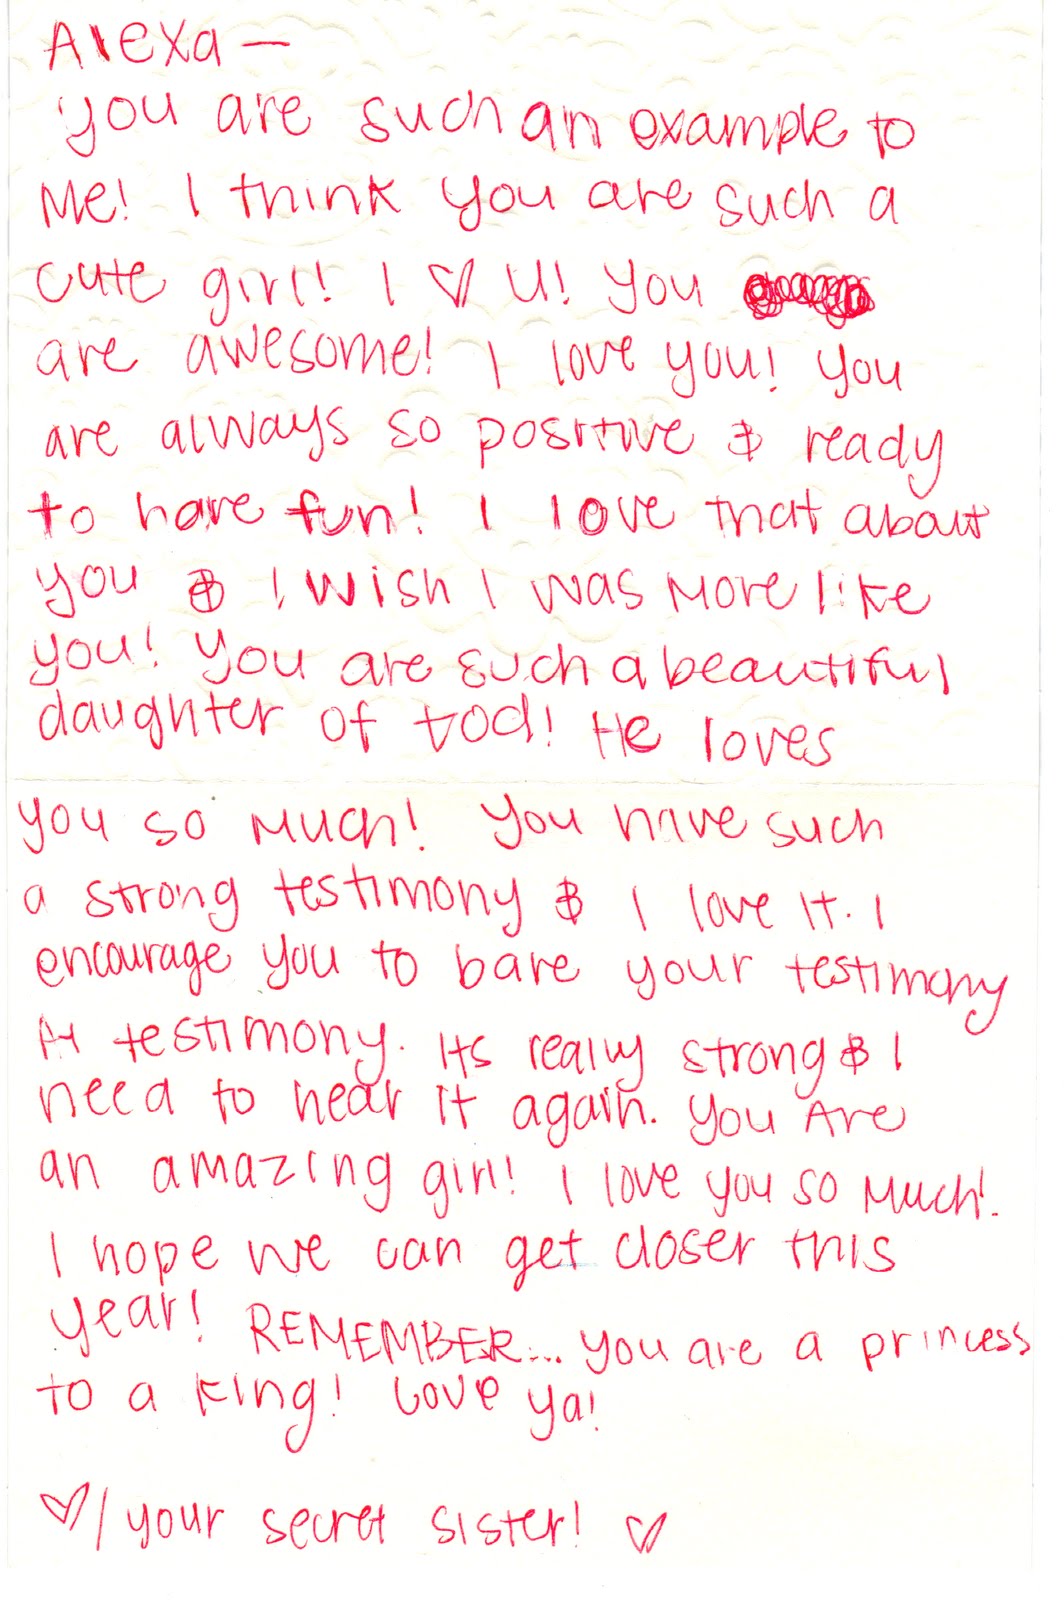 Alexa —
you are such an example to
Me! I think you are such a
cute girl! I ♡ U! You
are awesome! I love you! You
are always so positive & ready
to have fun! I love that about
you & I wish I was More like
you! You are such a beautiful
daughter of God! He loves
you so Much! You have such
a strong testimony & I love It. I
encourage you to bare your testimony
At testimony. Its really strong & I
need to hear It again. You Are
an amazing girl! I love you so Much!
I hope we can get closer this
year! REMEMBER... you are a princess
to a King! Love ya!
♡/ your secret sister! ♡